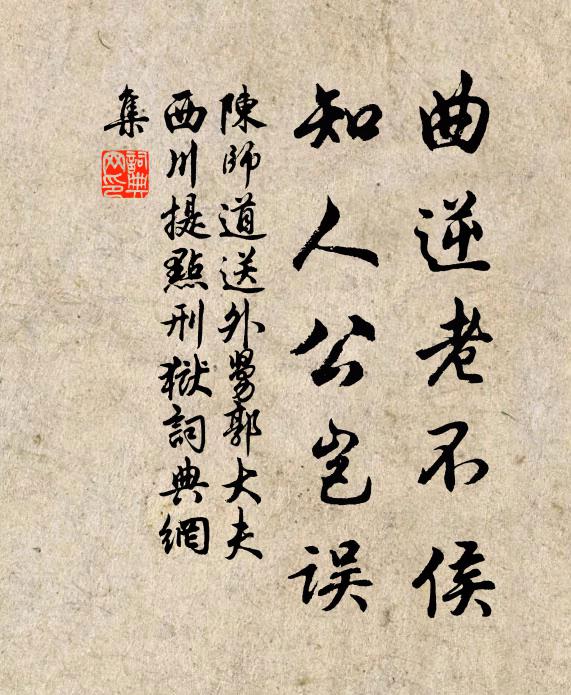 曲逆老不侯
知人公豈誤
陳師道送外舅郭大夫
西川提點刑獄詞典網
集
詞典網印